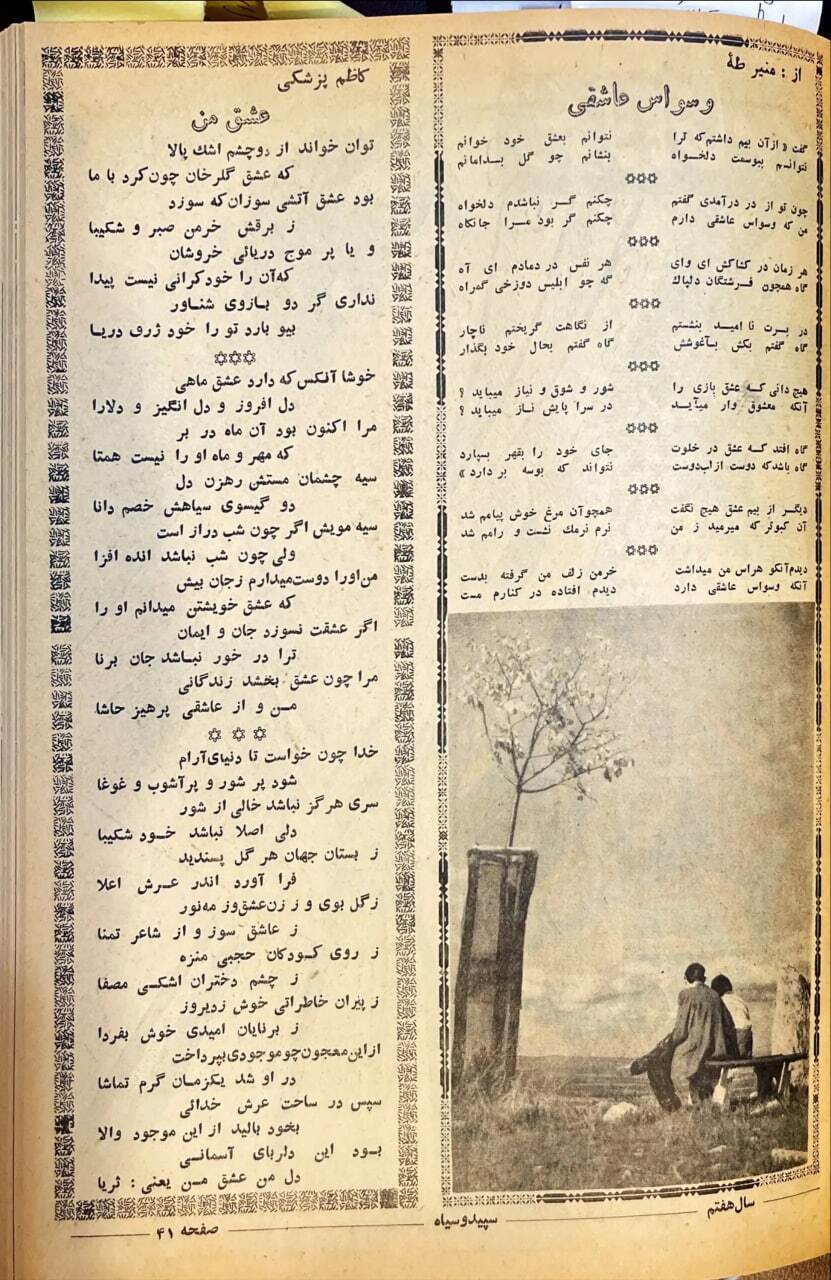 از : منیر طهٔ
وسواس عاشقی
گفت « از آن بیم داشتم که ترا نتوانم بعشق خود خوانم
نتوانم ببوسمت دلخواه بنشانم چو گل بدامانم
***
چون تو از در درآمدی گفتم چکنم گر نباشدم دلخواه
من که وسواس عاشقی دارم چکنم گر بود مرا جانکاه
***
هر زمان در کشاکش ای وای هر نفس در دمادم ای آه
گاه همچون فرشتگان دلپاک گه چو ابلیس دوزخی گمراه
***
در برت نا امید بنشستم از نگاهت گریختم ناچار
گاه گفتم بکش بآغوشش گاه گفتم بحال خود بگذار
***
هیچ دانی که عشق بازی را شور و شوق و نیاز میباید ؟
آنکه معشوق وار میآید در سرا پایش ناز میباید ؟
***
گاه افتد که عشق در خلوت جای خود را بقهر بسپارد
گاه باشد که دوست از لب دوست نتواند که بوسه بر دارد »
***
دیگر از بیم عشق هیچ نگفت همچو آن مرغ خوش پیامم شد
آن کبوتر که میرمید ز من نرم نرمک نشست و رامم شد
***
دیدم آنکو هراس من میداشت خرمن زلف من گرفته بدست
آنکه وسواس عاشقی دارد دیدم افتاده در کنارم مست
کاظم پزشکی
عشق من
توان خواند از دوچشم اشك پالا
که عشق گلرخان چون کرد با ما
بود عشق آتشی سوزان که سوزد
ز برقش خرمن صبر و شکیبا
و یا پر موج دریائی خروشان
که آن را خود کرانی نیست پیدا
نداری گر دو بازوی شناور
بیو بارد تو را خود ژرف دریا
***
خوشا آنکس که دارد عشق ماهی
دل افروز و دل انگیز و دلارا
مرا اکنون بود آن ماه در بر
که مهر و ماه او را نیست همتا
سیه چشمان مستش رهزن دل
دو گیسوی سیاهش خصم دانا
سیه مویش اگر چون شب دراز است
ولی چون شب نباشد انده افزا
من اورا دوست میدارم زجان بیش
که عشق خویشتن میدانم او را
اگر عشقت نسوزد جان و ایمان
ترا در خور نباشد جان برنا
مرا چون عشق بخشد زندگانی
من و از عاشقی پرهیز حاشا
* * *
خدا چون خواست تا دنیای آرام
شود پر شور و پرآشوب و غوغا
سری هرگز نباشد خالی از شور
دلی اصلا نباشد خود شکیبا
ز بستان جهان هر گل پسندید
فرا آورد اندر عرش اعلا
زگل بوی و ز زن عشق وز مه نور
ز عاشق سوز و از شاعر تمنا
ز روی کودکان حجبی منزه
ز چشم دختران اشکی مصفا
ز پیران خاطراتی خوش زدیروز
ز برنایان امیدی خوش بفردا
از این معجون چو موجودی بپرداخت
در او شد یکزمان گرم تماشا
سپس در ساحت عرش خدائی
بخود بالید از این موجود والا
بود این دلربای آسمانی
دل من عشق من یعنی : ثریا
سال هفتم
سپید و سیاه
صفحه ۴۱